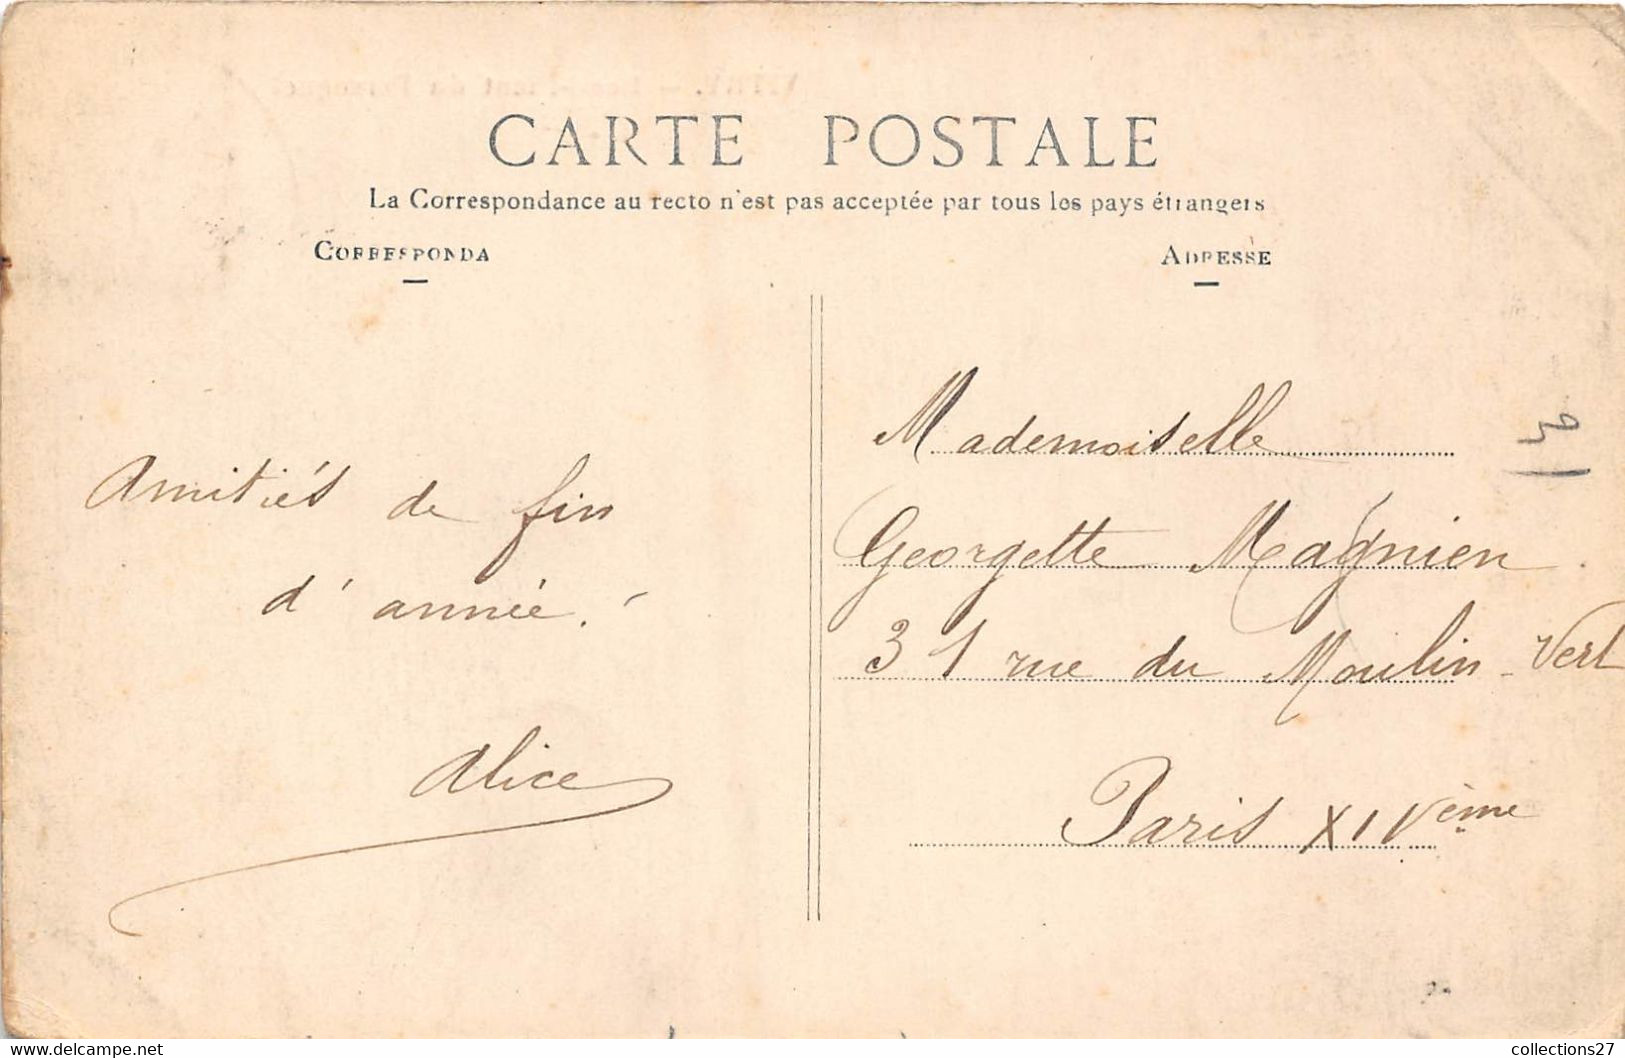 CARTE POSTALE
La Correspondance au recto n'est pas acceptée par tous les pays étrangers
CORRESPONDA
ADRESSE
Amitiés de fin
d'année.
Alice
Mademoiselle
Georgette Magnien
31 rue du Moulin-Vert
Paris XIVème
collections27